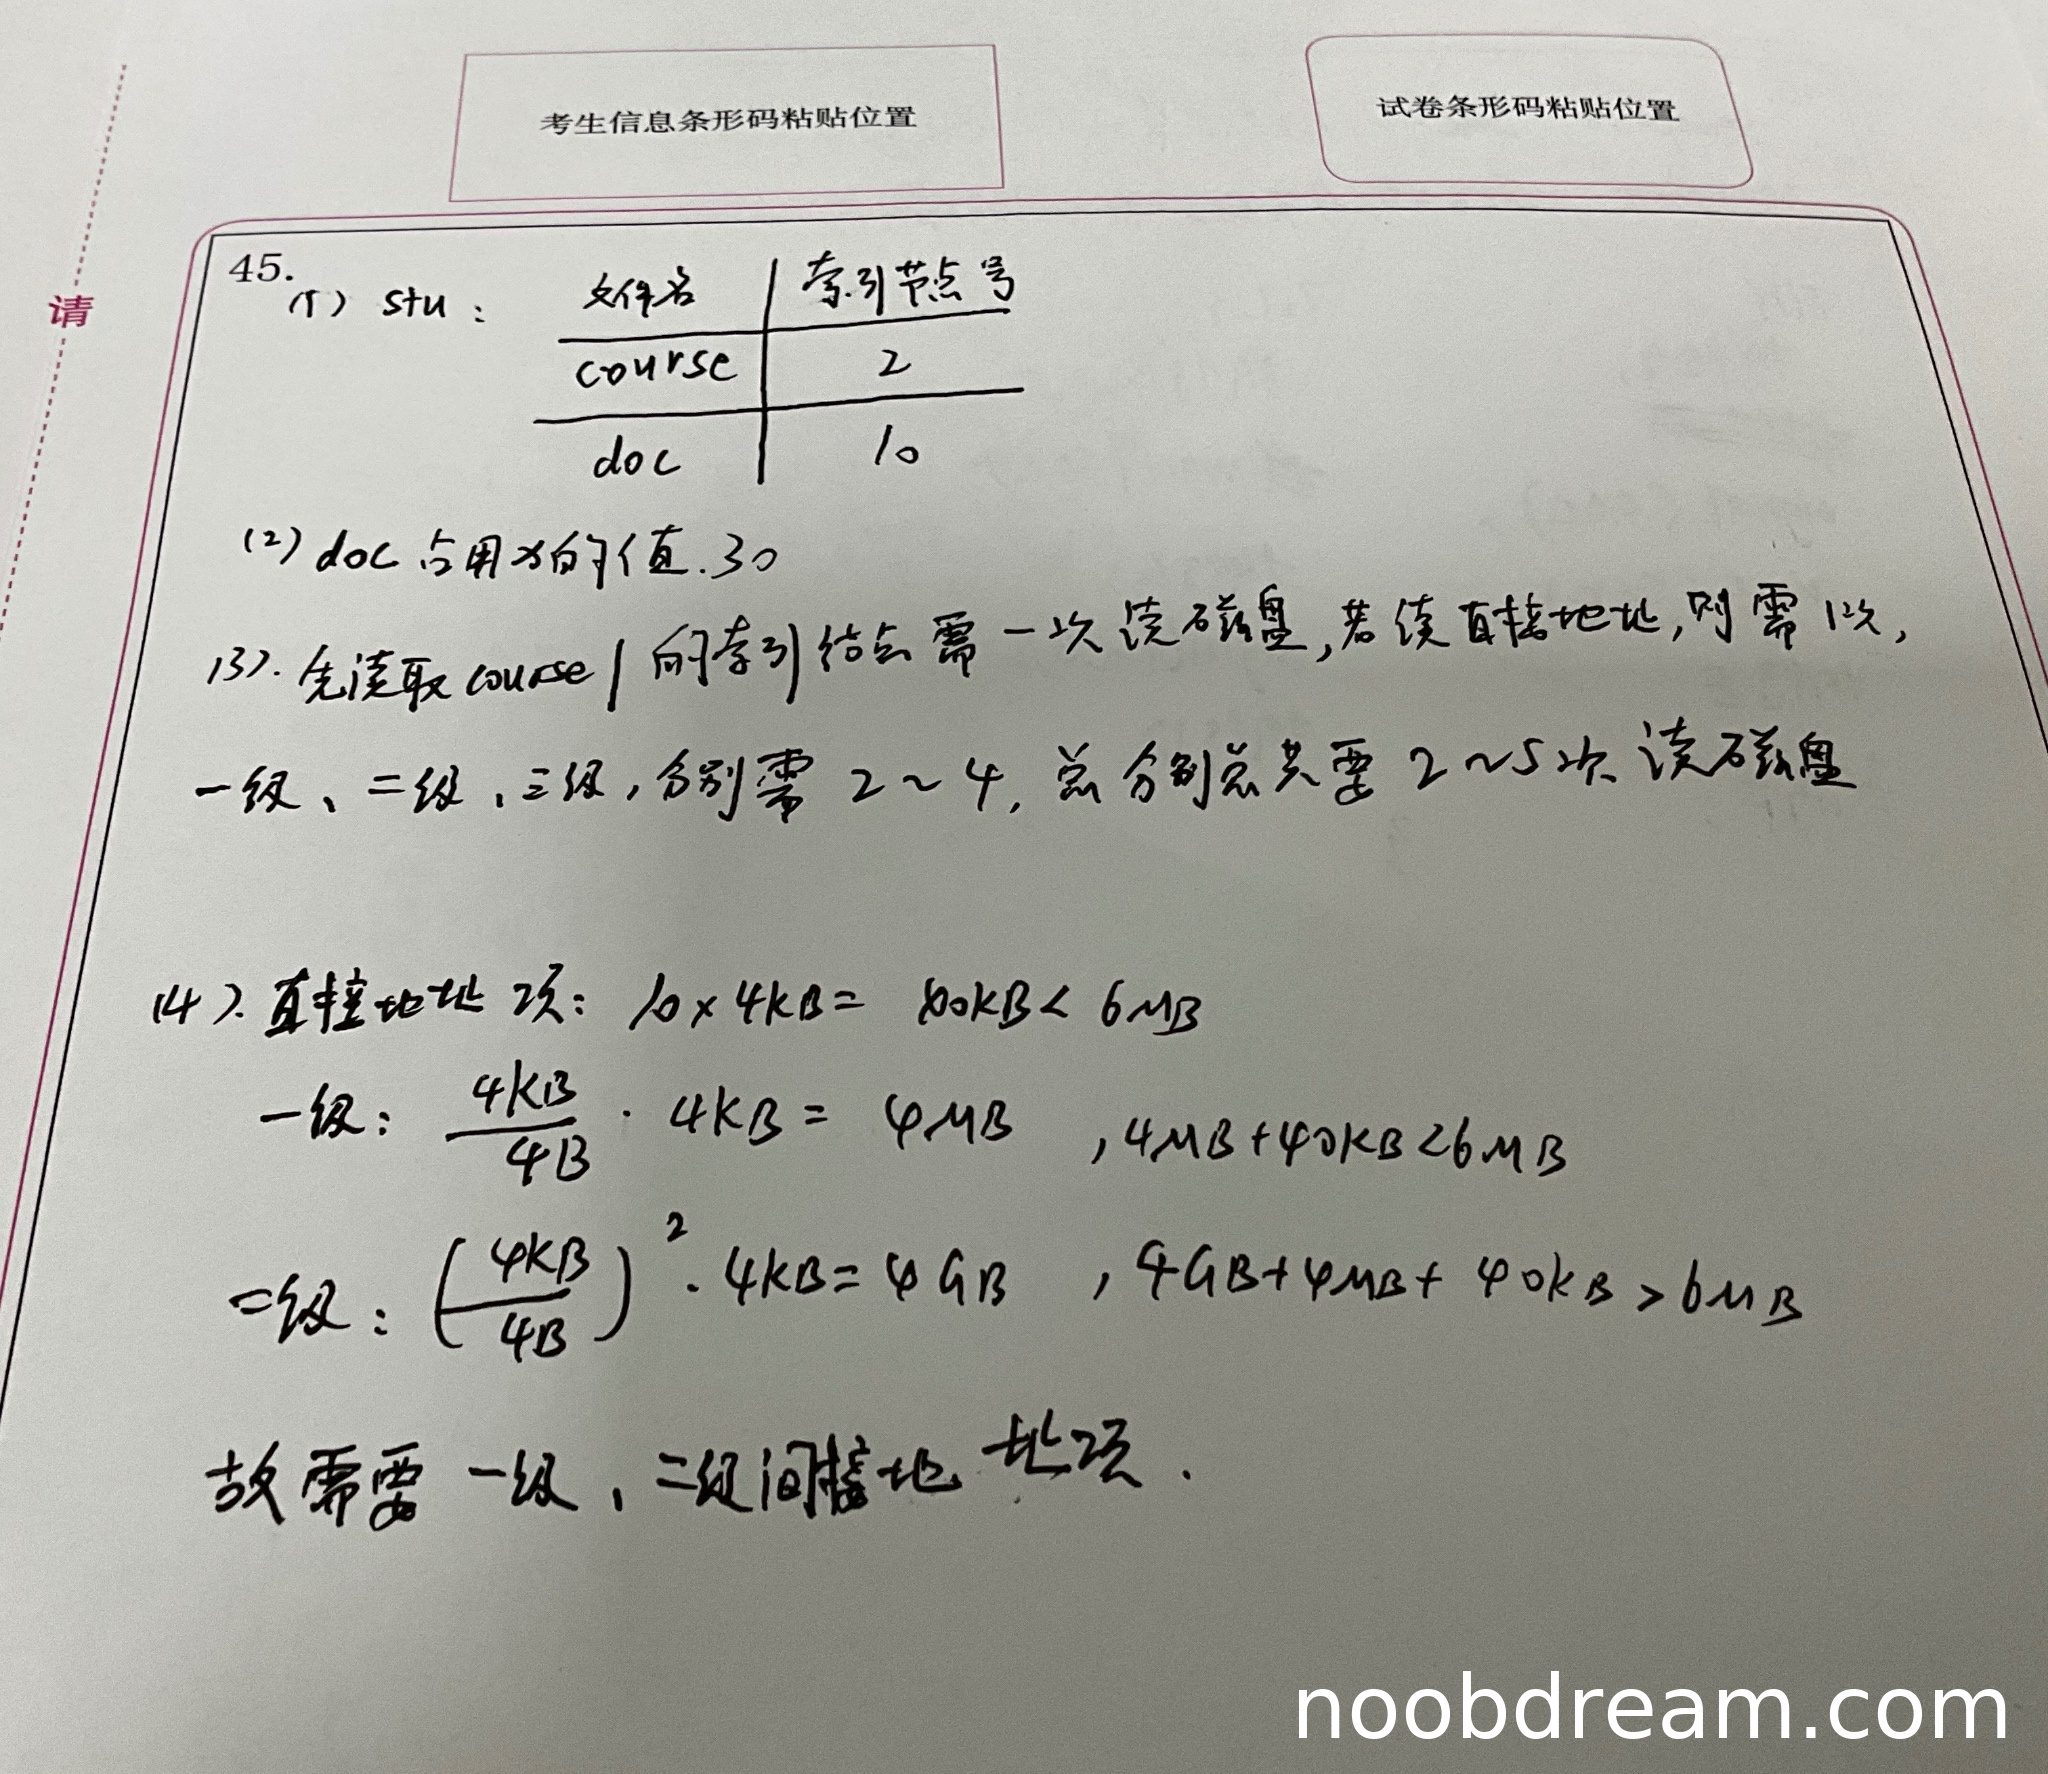 考生信息条形码粘贴位置
试卷条形码粘贴位置
请
45.
(1) stu: 文件名 索引节点号
course 2
doc 10
(2) doc 占用 x的值.30
(3). 先读取course1的索引结点需一次读磁盘,若读直接地址,则需1次,
一级、二级、三级,分别需 2~4, 总分别总共要 2~5次 读磁盘
(4). 直接地址项: 10×4KB= 40KB< 6MB
一级: 4KB/4B · 4KB = 4MB , 4MB+40KB<6MB
二级: (4KB/4B)² · 4KB = 4GB , 4GB+4MB+40KB > 6MB
故需要 一级、二级间接地址项.
noobdream.com